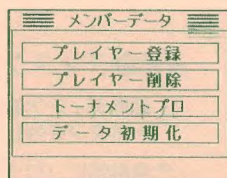 メンバーデータ
プレイヤー登録
プレイヤー削除
トーナメントプロ
データ初期化